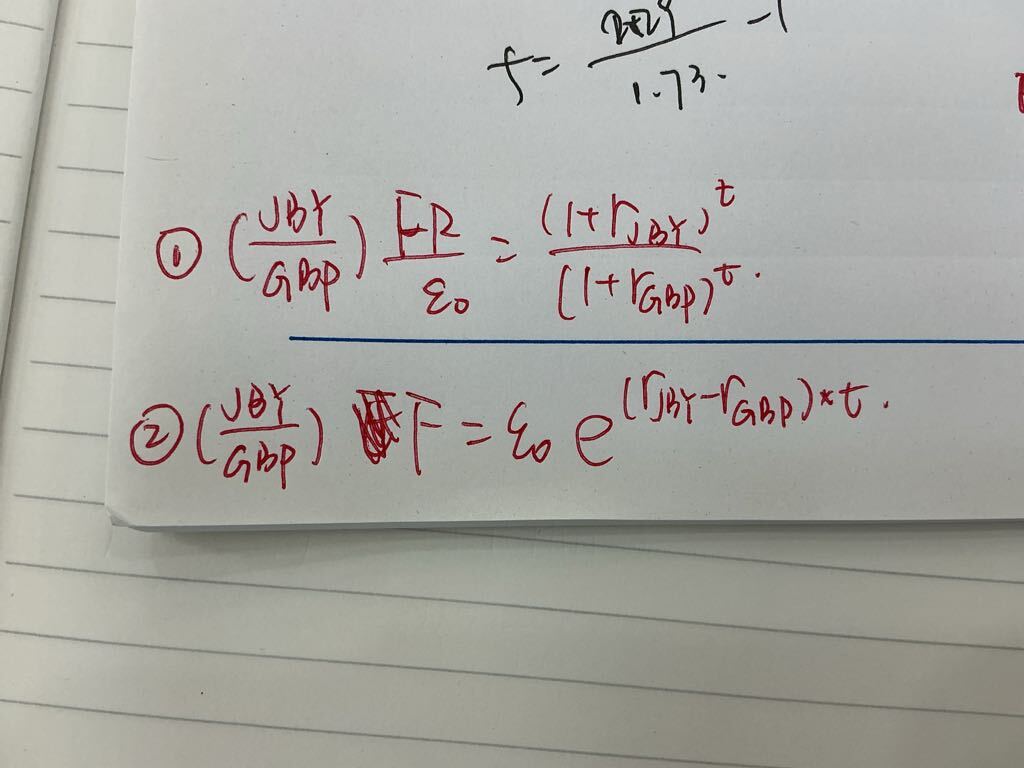 f = /1.73. -1
① (JBY/GBP) FR/ε0 = (1+rJBY)^t/(1+rGBP)^t.
② (JBY/GBP) F = ε0 e^(rJBY-rGBP)*t.